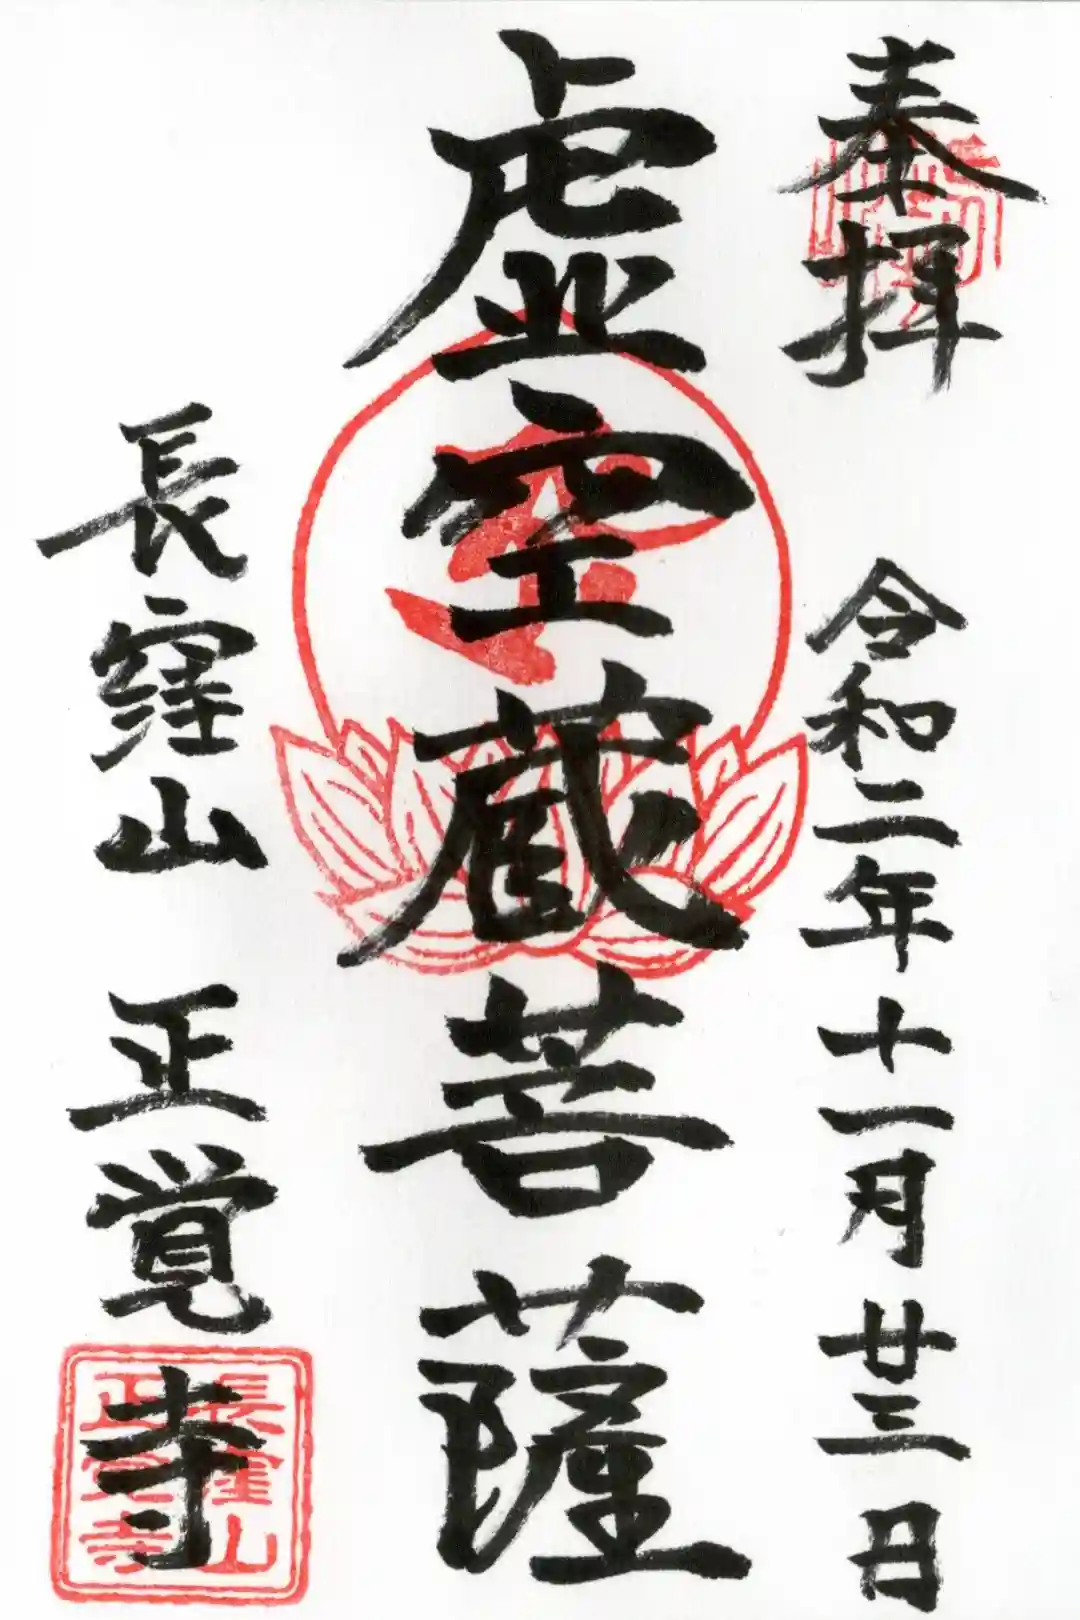 奉拝
令和二年十一月廿三日
虚空蔵菩薩
長窪山 正覚寺
長窪山
正覚寺